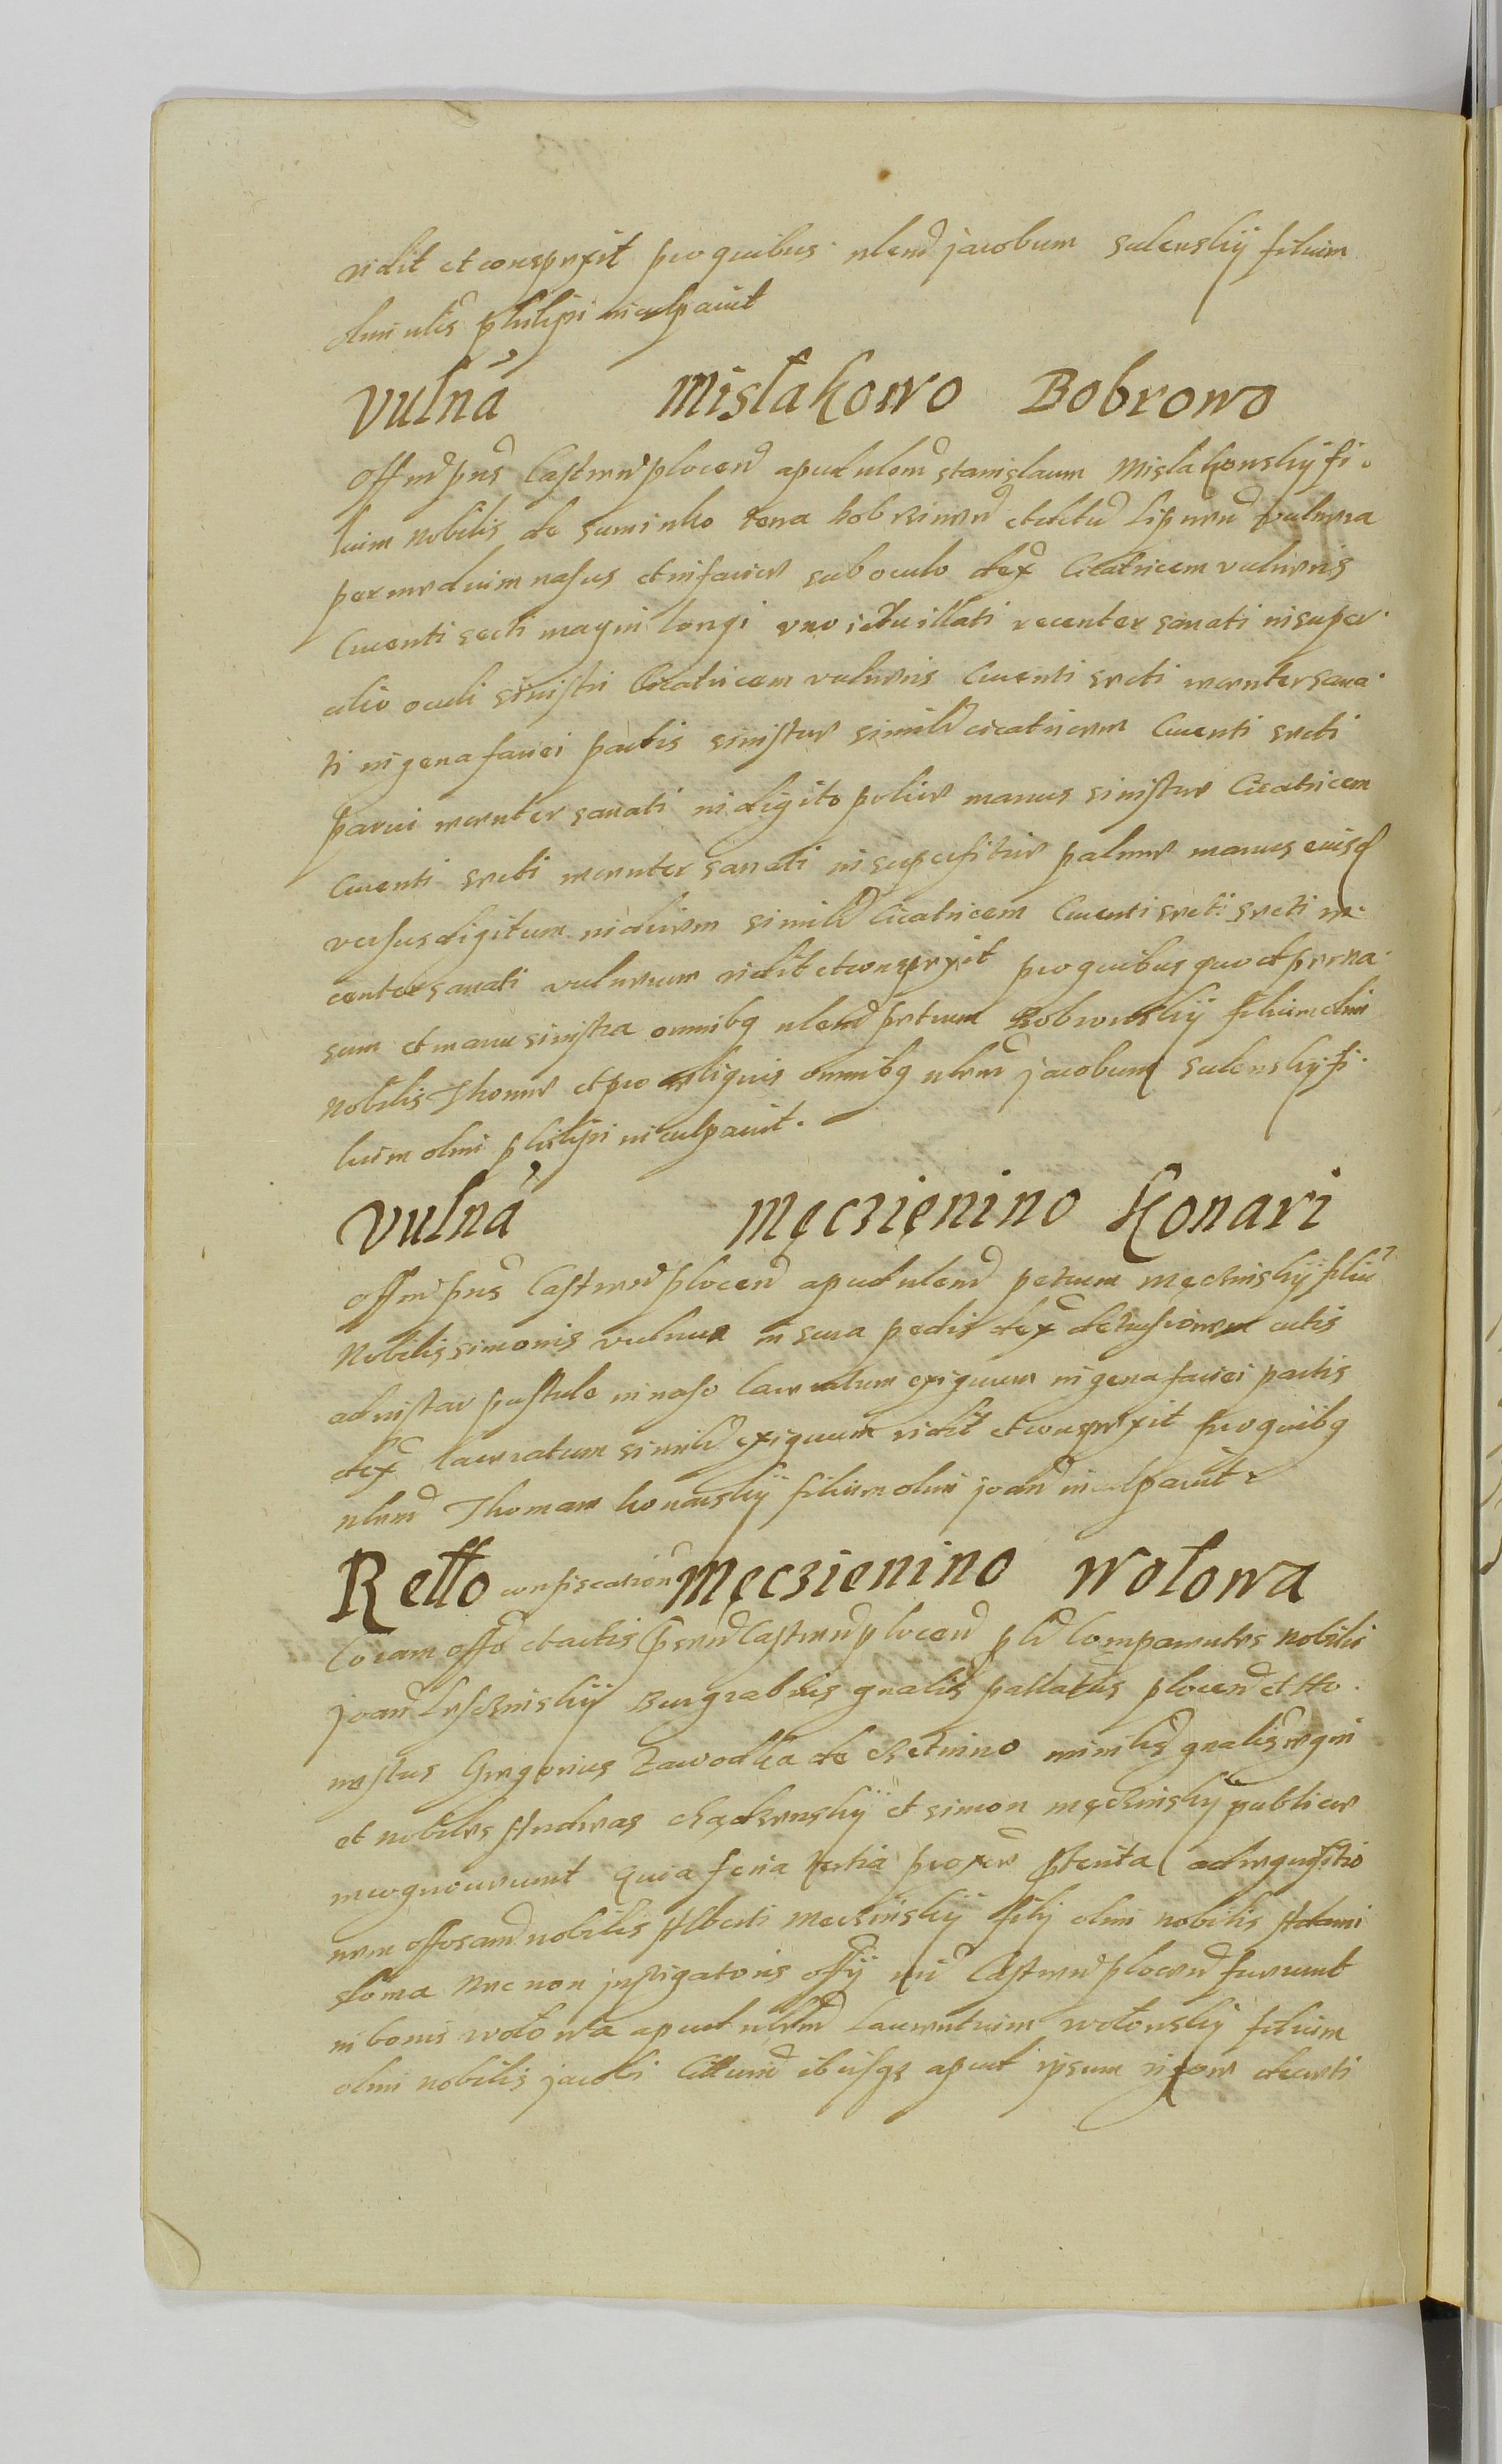 vidit et conspexit pro quibus nlem Jacobum Sulenskÿ filium
olim nlis philipi inculpauit
Vulna Mislakowo Bobrowo
Offm pns Castren plocen apud nlem stanislaum Mislakowskÿ fi
lium Nobilis de Suminko terra Dobrzinen et dctu Lipnen vulnera
per medium nasus et in facie sub oculo dex Cicatricem vulneris
Cruenti secti magni longi vno ictu illati recenter sanati in super
cilio oculi sinistri Cicatricem vulneris Cruenti secti recenter sana
ti in gena faciei partis sinistre simile cicatricem Cruenti secti
parui recenter sanati in digito police manus sinistre Cicatricem
Cruenti secti recenter sanati in superfitie palme manus eiusd
versus digitum indicem simile Cicatricem Cruenti secti secti re
center sanati vulnerum vidit et conspexit pro quibus quoad per na
sum et manu sinistra omnibq nlem petrum Bobrowskÿ filium olim
Nobilis Thome et pro reliquis omnibq nlem Jacobum Sulenskÿ fi
lium olim philipi inculpauit.
Vulna Męczienino Konari
Offm pns Castren plocen apud nlem petrum Męczinskÿ filiu
Nobilis simonis vulnus in sura pedis dex detrusionem cutis
ad instar pustule in naso laceratum exiguum in gena faciei partis
dex laceratum simile exiguum vidit et conspexit pro quibq
nlem Thomam konarskÿ filium olim joan inculpauit
Retto confiscation Męczienino Wolowa
Coram offo et actis Castren plocen plr Comparentes Nobilis
joan Burgrabius gnalis pallatus plocen et Ho
nestus Gregorius Zawodka de minilis gnalis regni
et nobiles Andreas et simon męczinskÿ publice
recognouerunt quia feria tertia proxie ptenta ad requisitio
nem nobilis Alberti Meczinskÿ filÿ olim nobilis Adami
Nec non jnstigatoris offÿ Castren plocen fuerunt
in bonis wolowa apud nlem Laurentium wolowskÿ filium
olim nobilis jacobi ibusqz apud ipsum vigore decreti